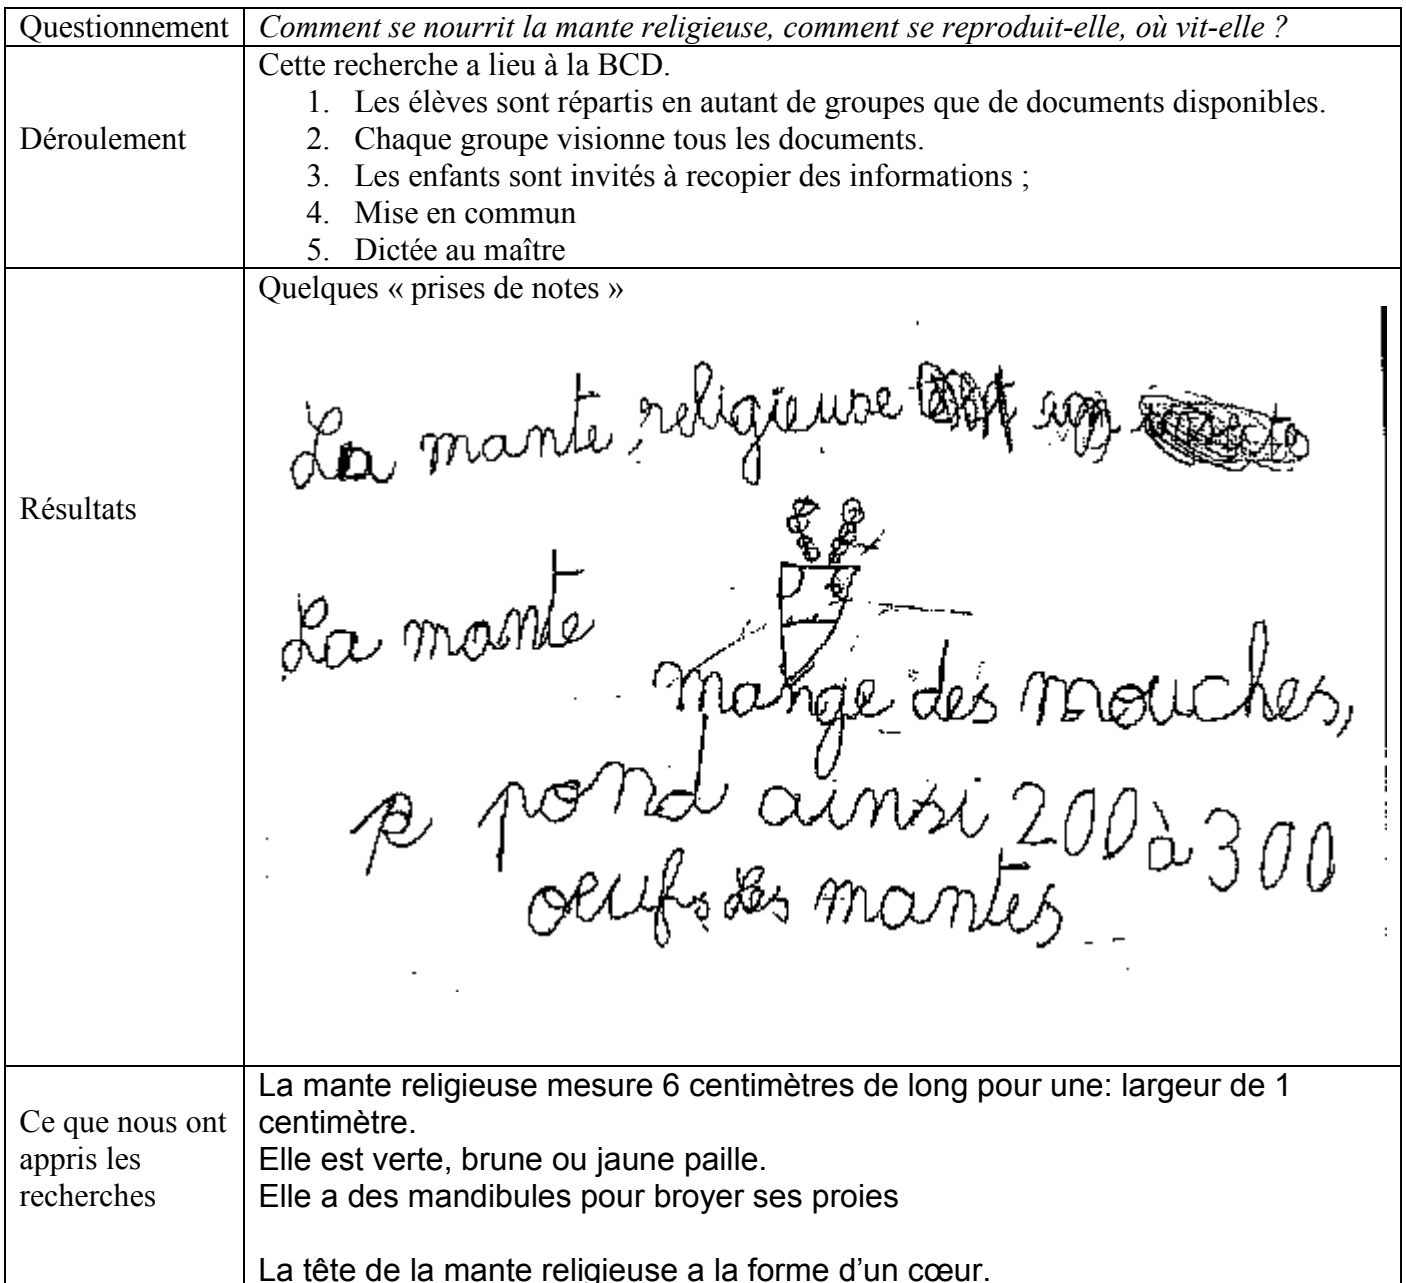 Questionnement
Comment se nourrit la mante religieuse, comment se reproduit-elle, où vit-elle ?
Déroulement
Cette recherche a lieu à la BCD.
1. Les élèves sont répartis en autant de groupes que de documents disponibles.
2. Chaque groupe visionne tous les documents.
3. Les enfants sont invités à recopier des informations ;
4. Mise en commun
5. Dictée au maître
Résultats
Quelques « prises de notes »
La mante religieuse
La mante
mange des mouches,
pond ainsi 200 à 300
oeufs. Les mantes
Ce que nous ont
appris les
recherches
La mante religieuse mesure 6 centimètres de long pour une: largeur de 1
centimètre.
Elle est verte, brune ou jaune paille.
Elle a des mandibules pour broyer ses proies
La tête de la mante religieuse a la forme d'un cœur.